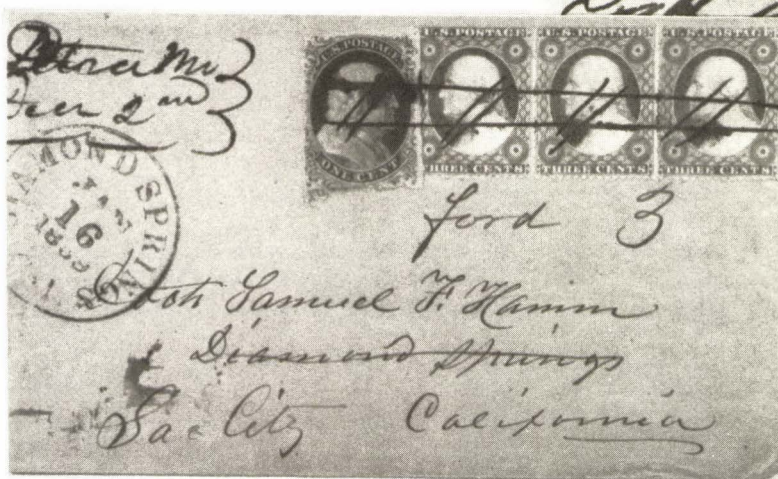 Petra Mo
Decr 2nd
U.S. POSTAGE
ONE CENT
U.S. POSTAGE
THREE CENTS
U.S. POSTAGE
THREE CENTS
U.S. POSTAGE
THREE CENTS
DIAMOND SPRINGS
JAN
16
1859
ford 3
Samuel F. Hamm
Diamond Springs
Sac City California